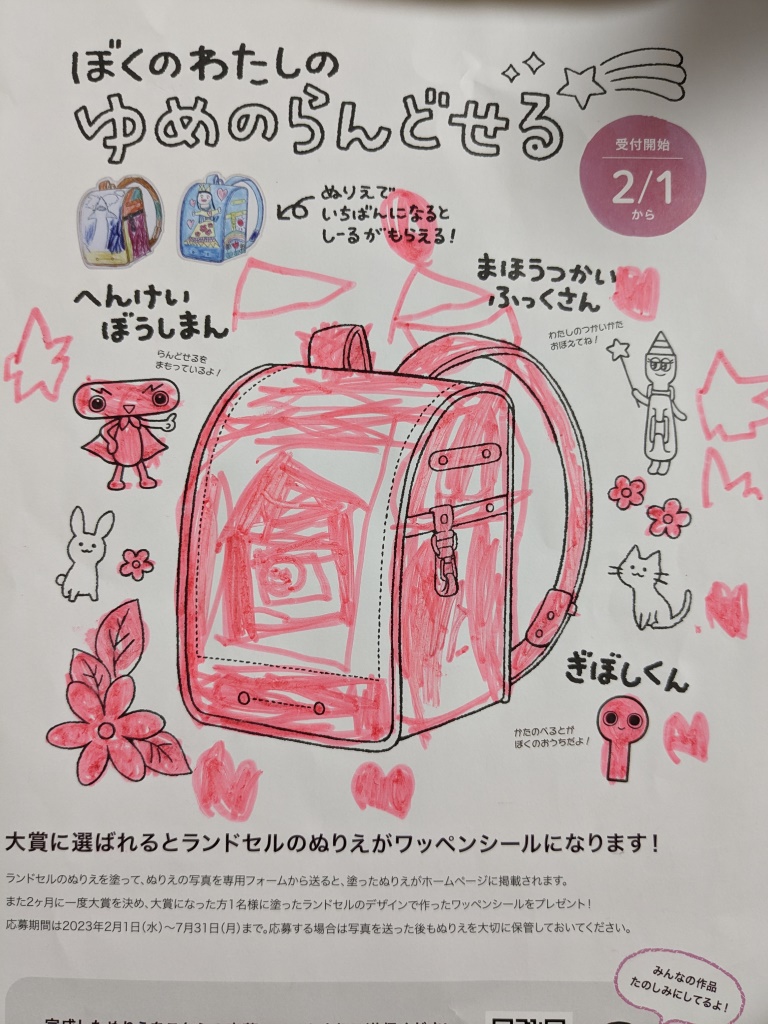 ぼくのわたしの
ゆめのらんどせる
受付開始
2/1
から
ぬりえで
いちばんになると
しーるがもらえる！
まほうつかい
ふっくさん
わたしのつかいかた
おぼえてね！
へんけい
ぼうしまん
らんどせるを
まもっているよ！
ぎぼしくん
かたのべるとが
ぼくのおうちだよ！
大賞に選ばれるとランドセルのぬりえがワッペンシールになります！
ランドセルのぬりえを塗って、ぬりえの写真を専用フォームから送ると、塗ったぬりえがホームページに掲載されます。
また2ヶ月に一度大賞を決め、大賞になった方1名様に塗ったランドセルのデザインで作ったワッペンシールをプレゼント！
応募期間は2023年2月1日（水）～7月31日（月）まで。応募する場合は写真を送った後もぬりえを大切に保管しておいてください。
みんなの作品
たのしみにしてるよ！